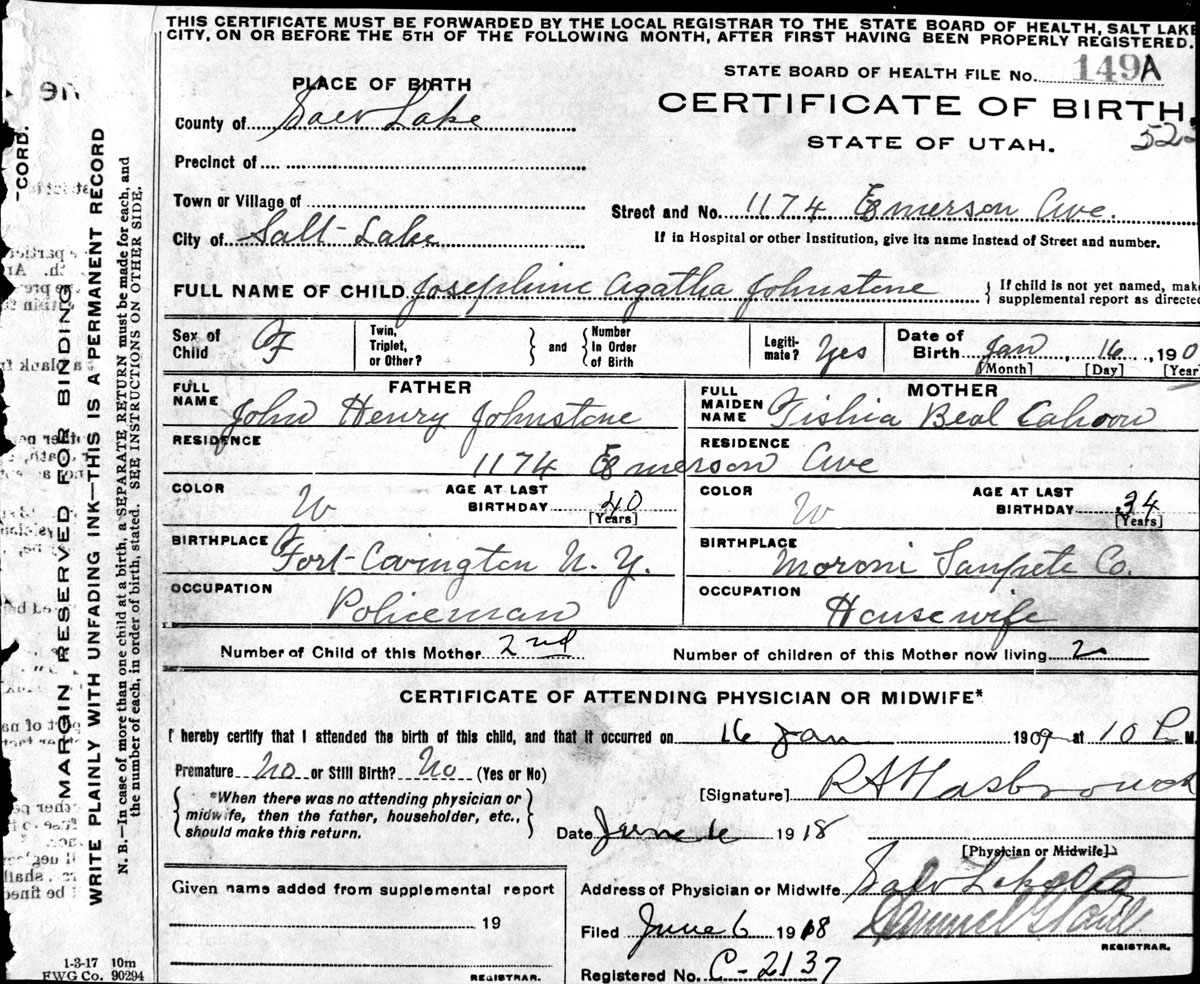 THIS CERTIFICATE MUST BE FORWARDED BY THE LOCAL REGISTRAR TO THE STATE BOARD OF HEALTH, SALT LAKE
CITY, ON OR BEFORE THE 5TH OF THE FOLLOWING MONTH, AFTER FIRST HAVING BEEN PROPERLY REGISTERED.
PLACE OF BIRTH
STATE BOARD OF HEALTH FILE No. 149A
County of Salt Lake
CERTIFICATE OF BIRTH
STATE OF UTAH.
Precinct of
Town or Village of
Street and No. 1174 Emerson Ave.
City of Salt Lake
If in Hospital or other Institution, give its name instead of Street and number.
FULL NAME OF CHILD Josephine Agatha Johnstone
If child is not yet named, make
supplemental report as directed
Sex of Child F
Twin, Triplet, or Other? and Number in Order of Birth
Legiti-mate? Yes
Date of Birth Jan, 16, 190
[Month] [Day] [Year
FATHER
MOTHER
FULL NAME John Henry Johnstone
FULL MAIDEN NAME Tishia Beal Cahoon
RESIDENCE
RESIDENCE
1174 Emerson Ave
COLOR W
AGE AT LAST BIRTHDAY 40
[Years]
COLOR W
AGE AT LAST BIRTHDAY 34
[Years]
BIRTHPLACE Fort-Covington N.Y.
BIRTHPLACE Moroni Sanpete Co.
OCCUPATION Policeman
OCCUPATION Housewife
Number of Child of this Mother 2nd
Number of children of this Mother now living 2
CERTIFICATE OF ATTENDING PHYSICIAN OR MIDWIFE*
I hereby certify that I attended the birth of this child, and that it occurred on 16 Jan 1909 at 10 P M.
Premature No or Still Birth? No (Yes or No)
[Signature] R A Hasbrouck
*When there was no attending physician or
midwife, then the father, householder, etc.,
should make this return.
Date June 6 1918
[Physician or Midwife]
Given name added from supplemental report
Address of Physician or Midwife Salt Lake
19
Filed June 6 1918
REGISTRAR.
Registered No. C-2137
REGISTRAR.
1-3-17 10m
FWG Co. 90294
MARGIN RESERVED FOR BINDING
WRITE PLAINLY WITH UNFADING INK—THIS IS A PERMANENT RECORD
N. B.—In case of more than one child at a birth, a SEPARATE RETURN must be made for each, and
the number of each, in order of birth, stated. SEE INSTRUCTIONS ON OTHER SIDE.